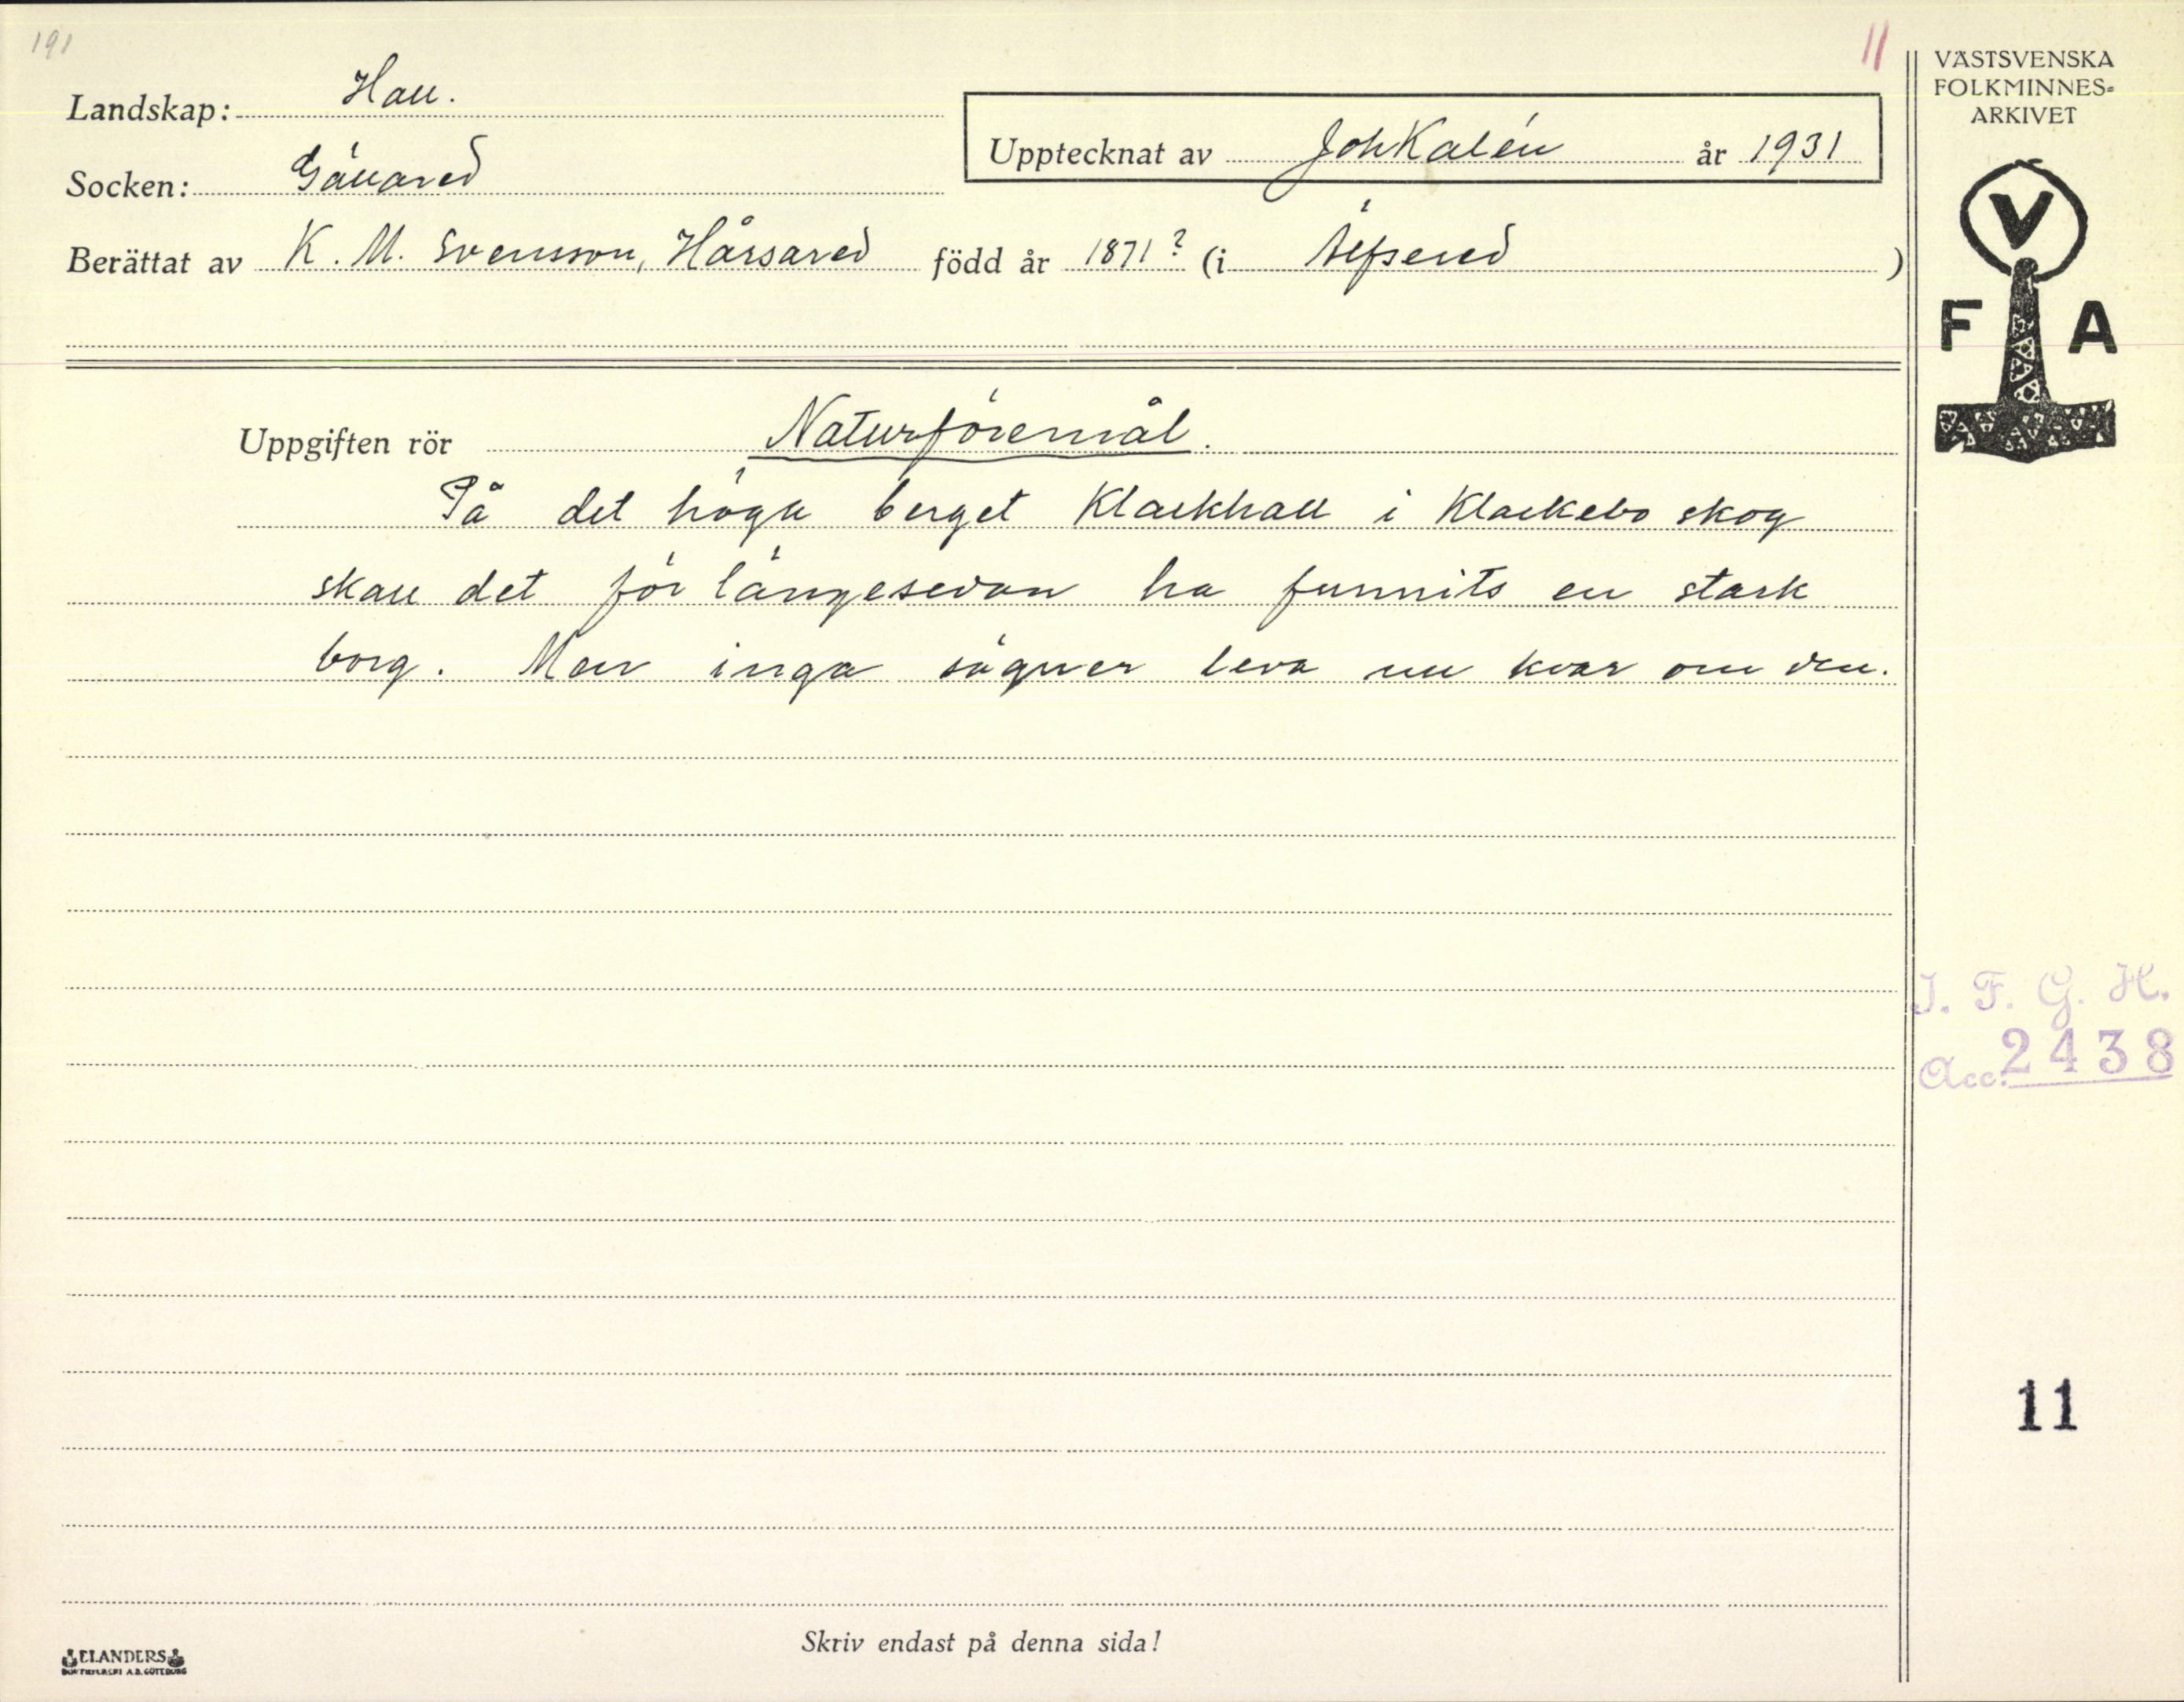 191
11
VÄSTSVENSKA
FOLKMINNES-
ARKIVET
Landskap: Hall.
Upptecknat av Joh Kalén år 1931
Socken: Gällared
Berättat av K. M. Svensson, Hårsared född år 1871? (i Älfsered)
V
F A
Uppgiften rör Naturföremål.
På det höga berget Klackhall i Klackebo skog
skall det för längesedan ha funnits en stark
borg. Men inga sägner leva nu kvar om den.
I. F. G. H.
Acc. 2438
11
Skriv endast på denna sida!
ELANDERS
BOKTRYCKERI A.B. GÖTEBORG